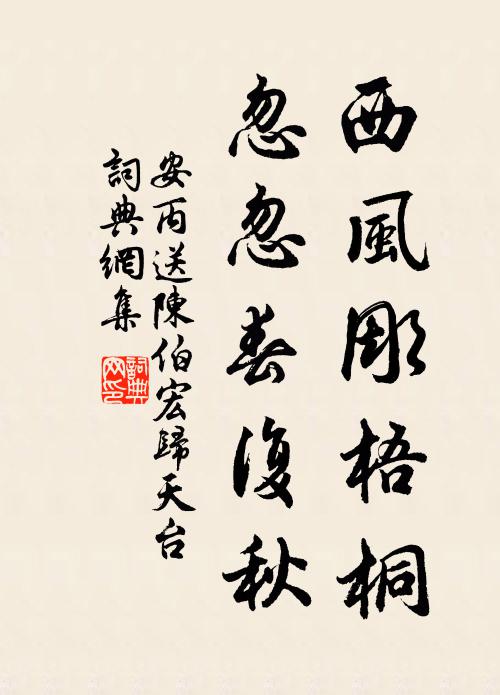 西風彫梧桐
忽忽春復秋
安丙送陳伯宏歸天台
詞典網集
詞典網印